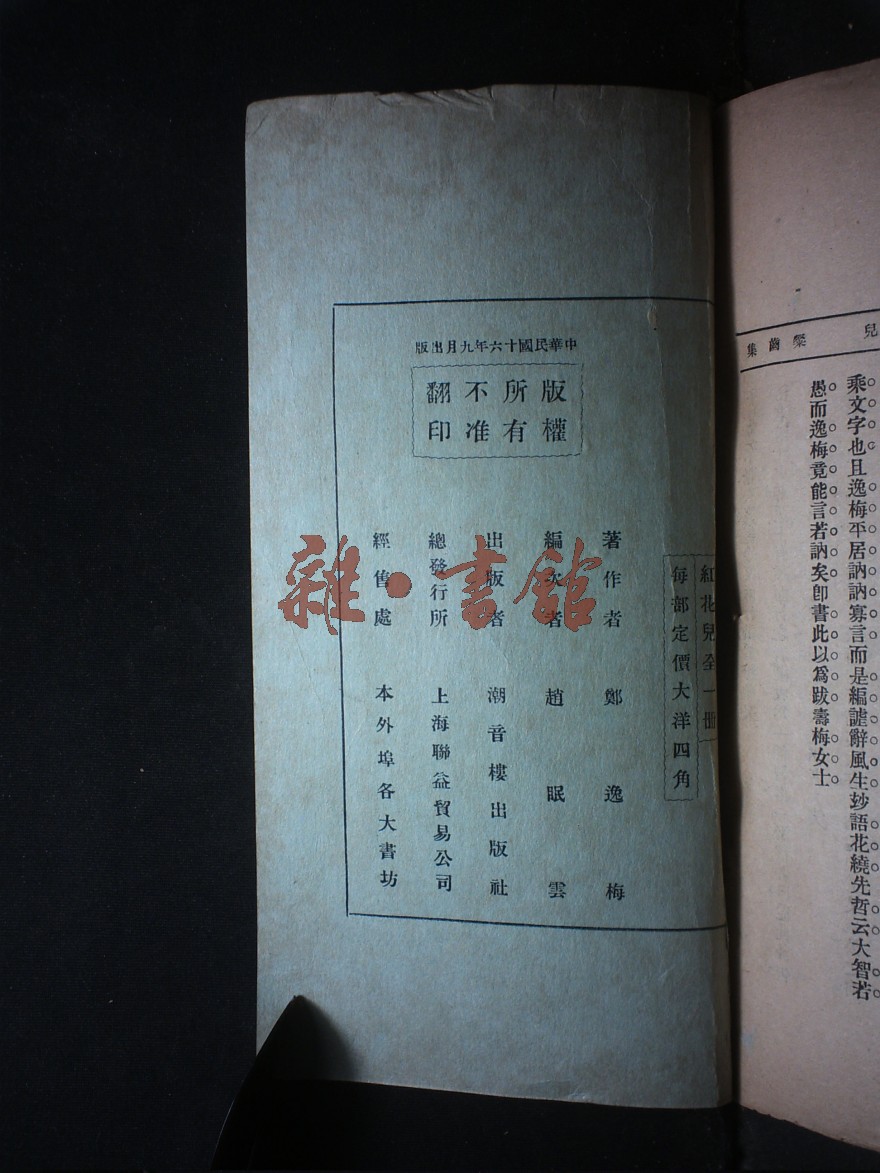 兒　粲齒集
乘文字也且逸梅平居訥訥寡言而是編謔辭風生玅語花繞先哲云大智若
愚而逸梅竟能言若訥矣卽書此以爲跋壽梅女士
中華民國十六年九月出版
版權
所有
不准
翻印
紅花兒全一册
每部定價大洋四角
著作者　鄭逸梅
編次者　趙眠雲
出版者　潮音樓出版社
總發行所　上海聯益貿易公司
經售處　本外埠各大書坊
雜·書館